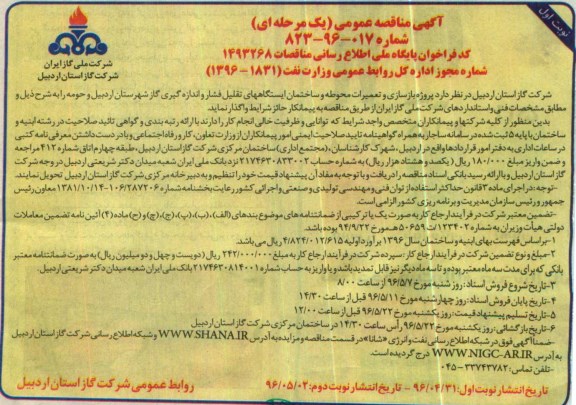 نوبت اول
آگهی مناقصه عمومی (یک مرحله ای)
شماره ۰۱۷-۹۶-۸۲۳
کد فراخوان پایگاه ملی اطلاع رسانی مناقصات ۱۴۹۳۲۶۸
شماره مجوز اداره کل روابط عمومی وزارت نفت (۱۸۳۱-۱۳۹۶)
شرکت ملی گاز ایران
شرکت گاز استان اردبیل
شرکت گاز استان اردبیل در نظر دارد پروژه بازسازی و تعمیرات محوطه و ساختمان ایستگاههای تقلیل فشار و اندازه گیری گاز شهرستان اردبیل و حومه را به شرح ذیل و
مطابق مشخصات فنی و استانداردهای شرکت ملی گاز ایران از طریق مناقصه به پیمانکار حائز شرایط واگذار نماید.
بدین منظور از کلیه شرکتها و پیمانکاران متخصص واجد شرایط که توانایی و ظرفیت خالی انجام کار را دارند با ارائه رتبه بندی و گواهی تائید صلاحیت در رشته ابنیه و
ساختمان با پایه ۵ ثبت شده در سامانه ساجار به همراه گواهینامه تایید صلاحیت ایمنی امور پیمانکاران از وزارت تعاون، کار و رفاه اجتماعی و با در دست داشتن معرفی نامه کتبی
در ساعات اداری به دفتر امور قراردادها واقع در اردبیل، شهرک کارشناسان، (مجتمع اداری) ساختمان مرکزی شرکت گاز استان اردبیل، طبقه چهارم اتاق شماره ۴۱۲ مراجعه
و ضمن واریز مبلغ ۱۸۰/۰۰۰ ریال (یکصد و هشتاد هزار ریال) به شماره حساب ۲۱۷۴۶۳۰۸۳۳۰۰۲ نزد بانک ملی ایران شعبه میدان دکتر شریعتی اردبیل در وجه شرکت
گاز استان اردبیل و با ارائه رسید بانکی اسناد مناقصه را دریافت و با توجه به مفاد آن پیشنهاد قیمت خود را تنظیم و به دبیرخانه مرکزی شرکت گاز استان اردبیل تحویل نمایند.
-توجه: در اجرای ماده ۳ قانون حداکثر استفاده از توان فنی و مهندسی تولیدی و صنعتی و اجرائی کشور رعایت بخشنامه شماره ۱۰۶/۲۸۷۲۰۶-۱۳۸۱/۱۰/۱۴ معاون رئیس
جمهور و رئیس سازمان مدیریت و برنامه ریزی کشور الزامی است.
-تضمین معتبر شرکت در فرآیند ارجاع کار به صورت یک یا ترکیبی از ضمانتنامه های موضوع بندهای (الف)، (ب)، (پ)، (ج)، (چ) و (ح) ماده (۴) آئین نامه تضمین معاملات
دولتی هیأت وزیران به شماره ۱۲۳۴۰۲/ت۵۰۶۵۹ه مورخ ۹۴/۹/۲۲ بوده باشد.
۱-براساس فهرست بهای ابنیه و ساختمان سال ۱۳۹۶ برآورد اولیه ۴/۸۲۴/۰۱۲/۶۱۵ ریال می باشد.
۲-مبلغ و نوع تضمین شرکت در فرآیند ارجاع کار: سپرده شرکت در فرآیند ارجاع کار به مبلغ ۲۴۲/۰۰۰/۰۰۰ ریال (دویست و چهل و دو میلیون ریال) به صورت ضمانتنامه معتبر
بانکی که برای مدت سه ماه معتبر بوده و تا سه ماه دیگر نیز قابل تمدید باشد و یا واریز به حساب شماره ۲۱۷۴۶۳۰۸۱۴۰۰۱ بانک ملی ایران شعبه میدان دکتر شریعتی اردبیل
۳-تاریخ شروع فروش اسناد: روز شنبه مورخ ۹۶/۵/۷ از ساعت ۸/۰۰
۴-تاریخ پایان فروش اسناد: روز چهارشنبه مورخ ۹۶/۵/۱۱ قبل از ساعت ۱۴/۳۰
۵-تاریخ تسلیم پیشنهاد قیمت: روز یکشنبه مورخ ۹۶/۵/۲۲ قبل از ساعت ۱۲/۰۰
۶-تاریخ بازگشائی: روز یکشنبه مورخ ۹۶/۵/۲۲ رأس ساعت ۱۴/۳۰ در ساختمان مرکزی شرکت گاز استان اردبیل
ضمناً آگهی فوق در شبکه اطلاع رسانی نفت و انرژی «شانا» در قسمت مناقصه و مزایده به آدرس WWW.SHANA.IR و شبکه اطلاع رسانی شرکت گاز استان اردبیل
به آدرس WWW.NIGC-AR.IR درج گردیده است.
-تلفن تماس: ۳۳۷۴۳۷۸۲-۰۴۵
تاریخ انتشار نوبت اول: ۹۶/۰۴/۳۱ - تاریخ انتشار نوبت دوم: ۹۶/۰۵/۰۲
روابط عمومی شرکت گاز استان اردبیل